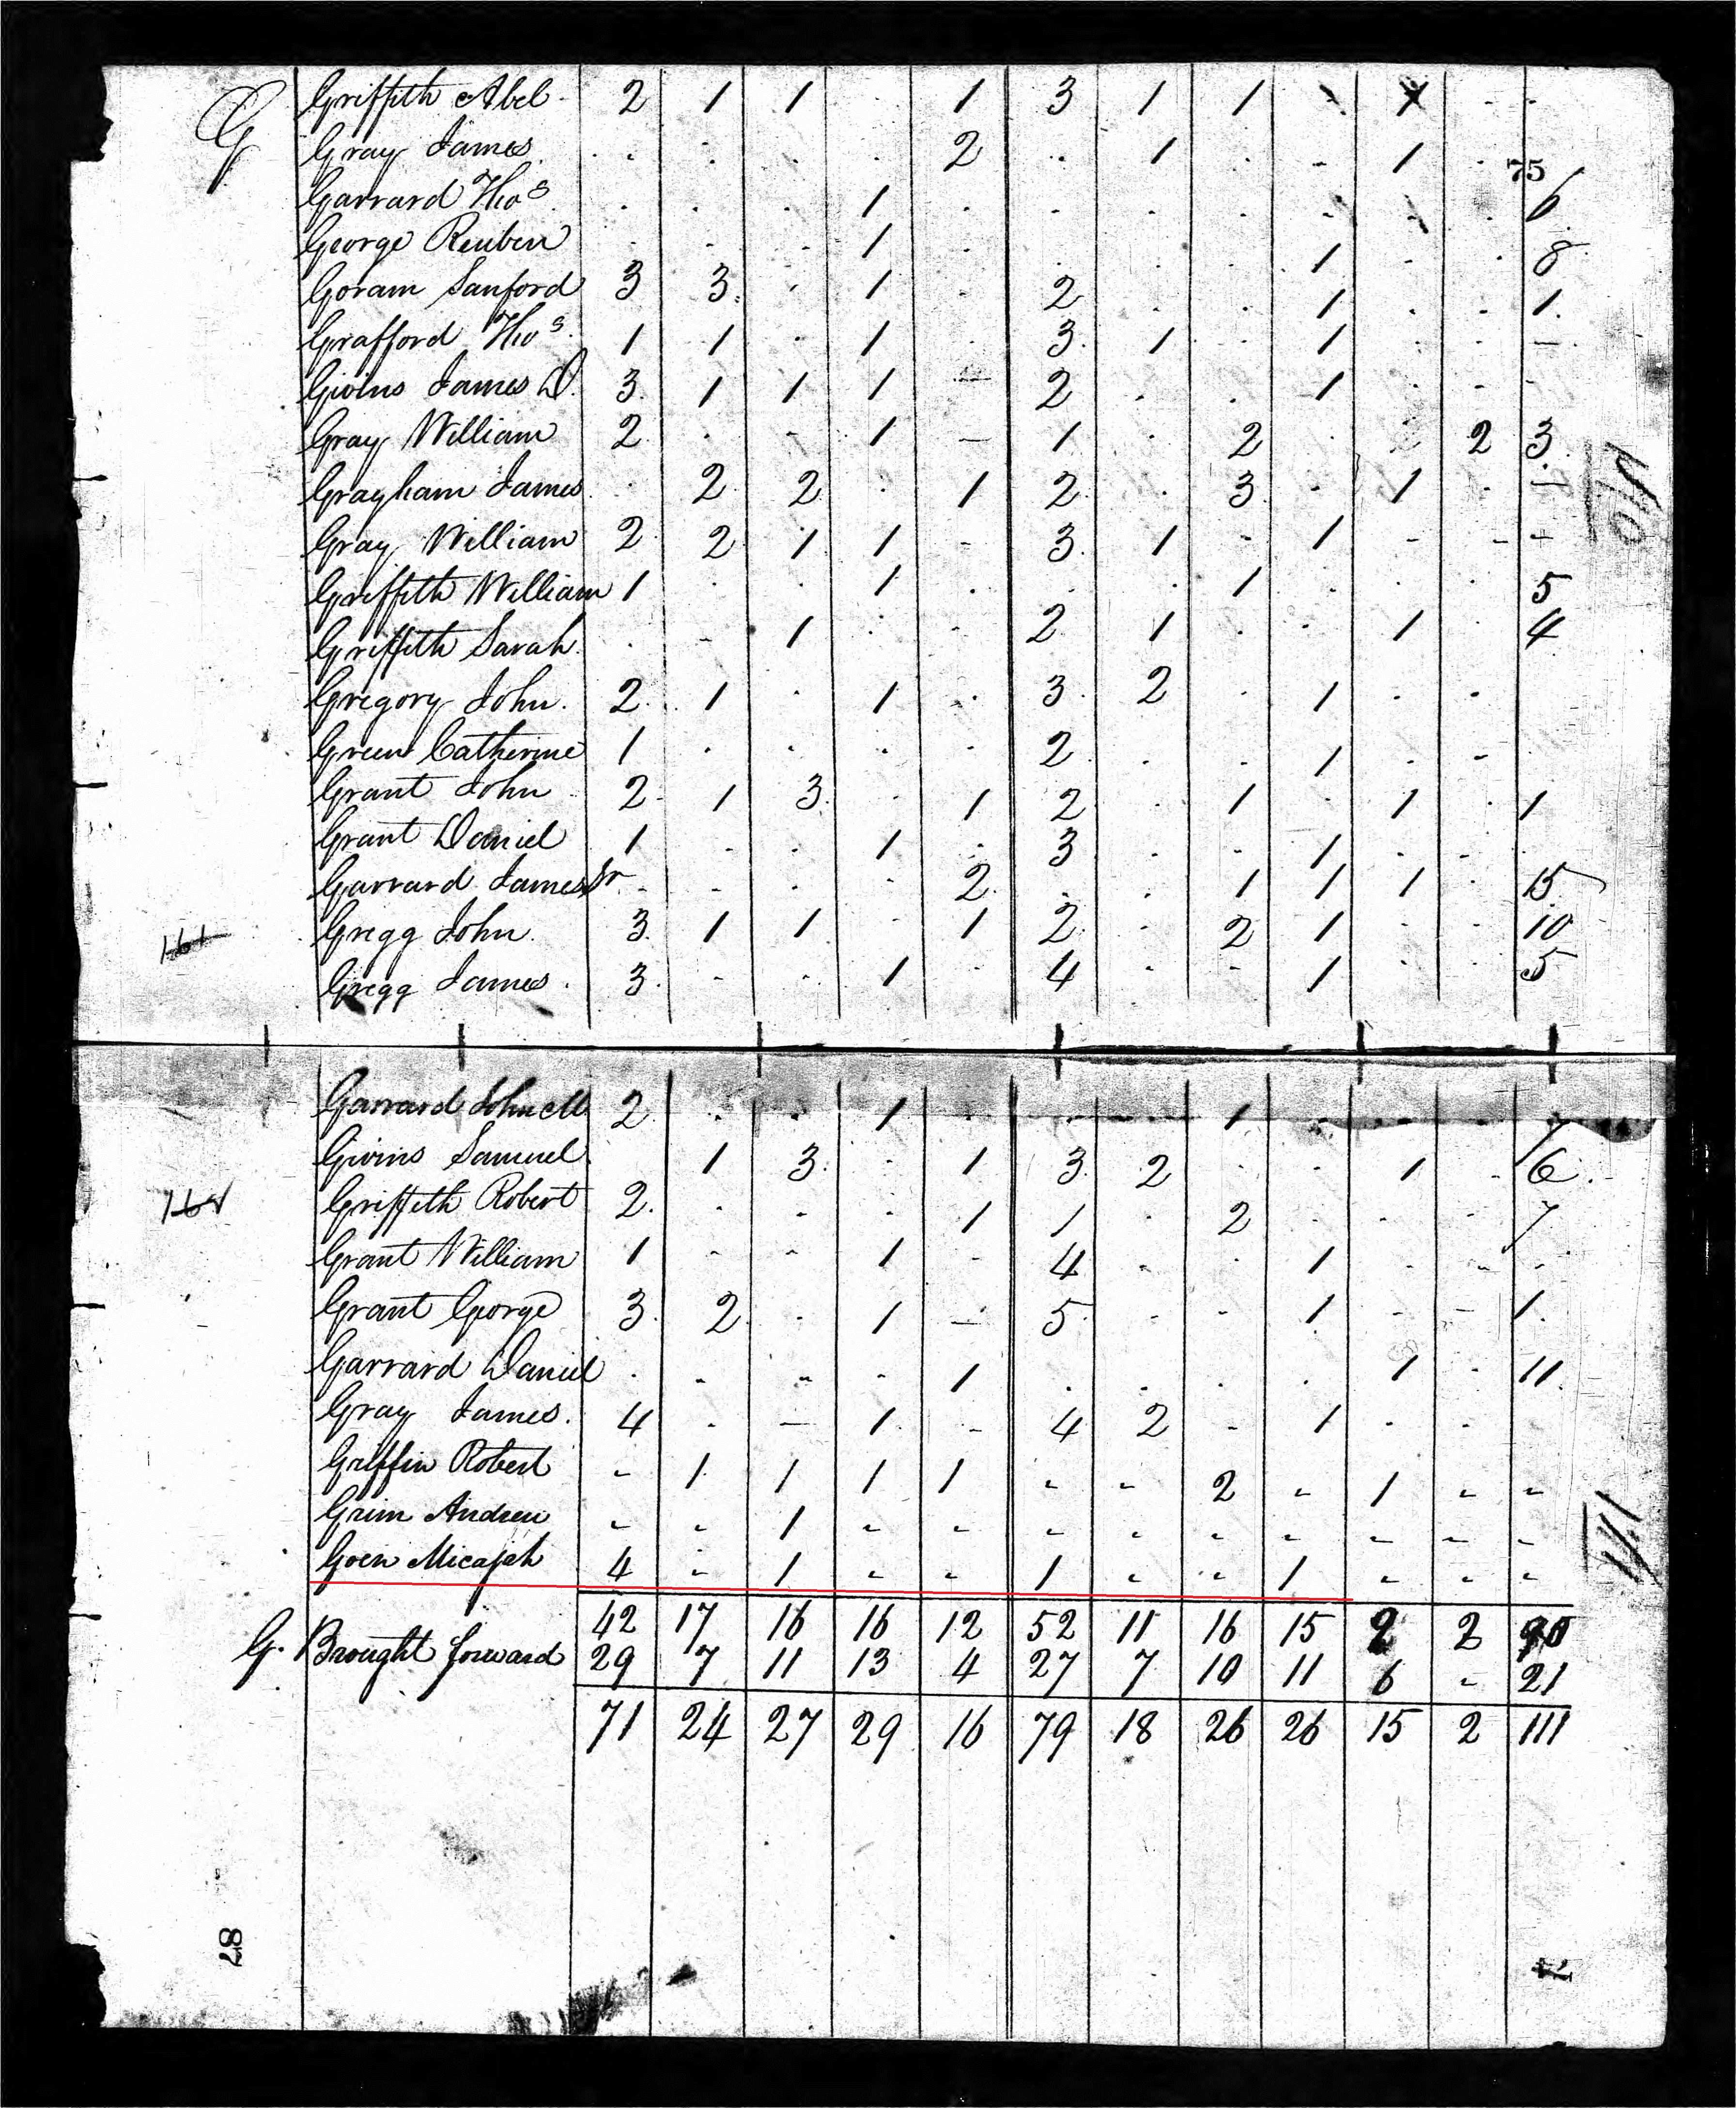 G Griffith Abel 2 1 1 . 1 3 1 1 . X . .
Gray James . . . . 2 . 1 . - 1 .
75
Garrard Thos . . . 1 . . . . . . . 6
George Reuben . . . 1 . . . . 1 . . 8
Goram Sanford 3 3 . 1 . 2 . . 1 . . 1
Grafford Thos 1 1 . 1 . 3 1 . 1 . . -
Givins James D. 3 1 1 1 - 2 . . 1 . . -
Gray William 2 . - 1 - 1 . 2 . . 2 3
Grayham James . 2 2 . 1 2 . 3 . 1 . -
110
Gray William 2 2 1 1 - 3 1 - 1 - - -
Griffith William 1 . . 1 . . . 1 . . . 5
Griffith Sarah . - 1 . - 2 1 . . 1 . 4
Gregory John 2 1 . 1 . 3 2 . 1 . .
Green Catherine 1 . . . . 2 . . 1 . -
Grant John 2 1 3 . 1 2 . 1 . 1 . 1
Grant Daniel 1 - . 1 . 3 . - 1 . - .
Garrard James Sr - - . . 2 . . 1 1 1 . 15
161 Gregg John 3 1 1 . 1 2 - 2 1 - . 10
Gregg James 3 - . 1 . 4 - - 1 . . 5
Garrard John M 2 . . 1 . . . 1 . . . 7
Givins Samuel 1 3 . 1 3 2 . . 1 . 6
Griffith Robert 2 . . . 1 1 . 2 . . . 7
Grant William 1 - - 1 - 4 - . 1 . . -
Grant George 3 2 . 1 - 5 - - 1 - - 1
Garrard Daniel . - - - 1 . . . . 1 . 11
Gray James 4 . - 1 - 4 2 - 1 . -
Griffin Robert - 1 1 1 1 - - 2 - 1 - -
Grim Andrew - - 1 - - - - - - - - -
111
Goen Micajah 4 - 1 - - 1 - - 1 - - -
42 17 16 16 12 52 11 16 15 9 2 90
G. Brought forward 29 7 11 13 4 27 7 10 11 6 - 21
71 24 27 29 16 79 18 26 26 15 2 111
87